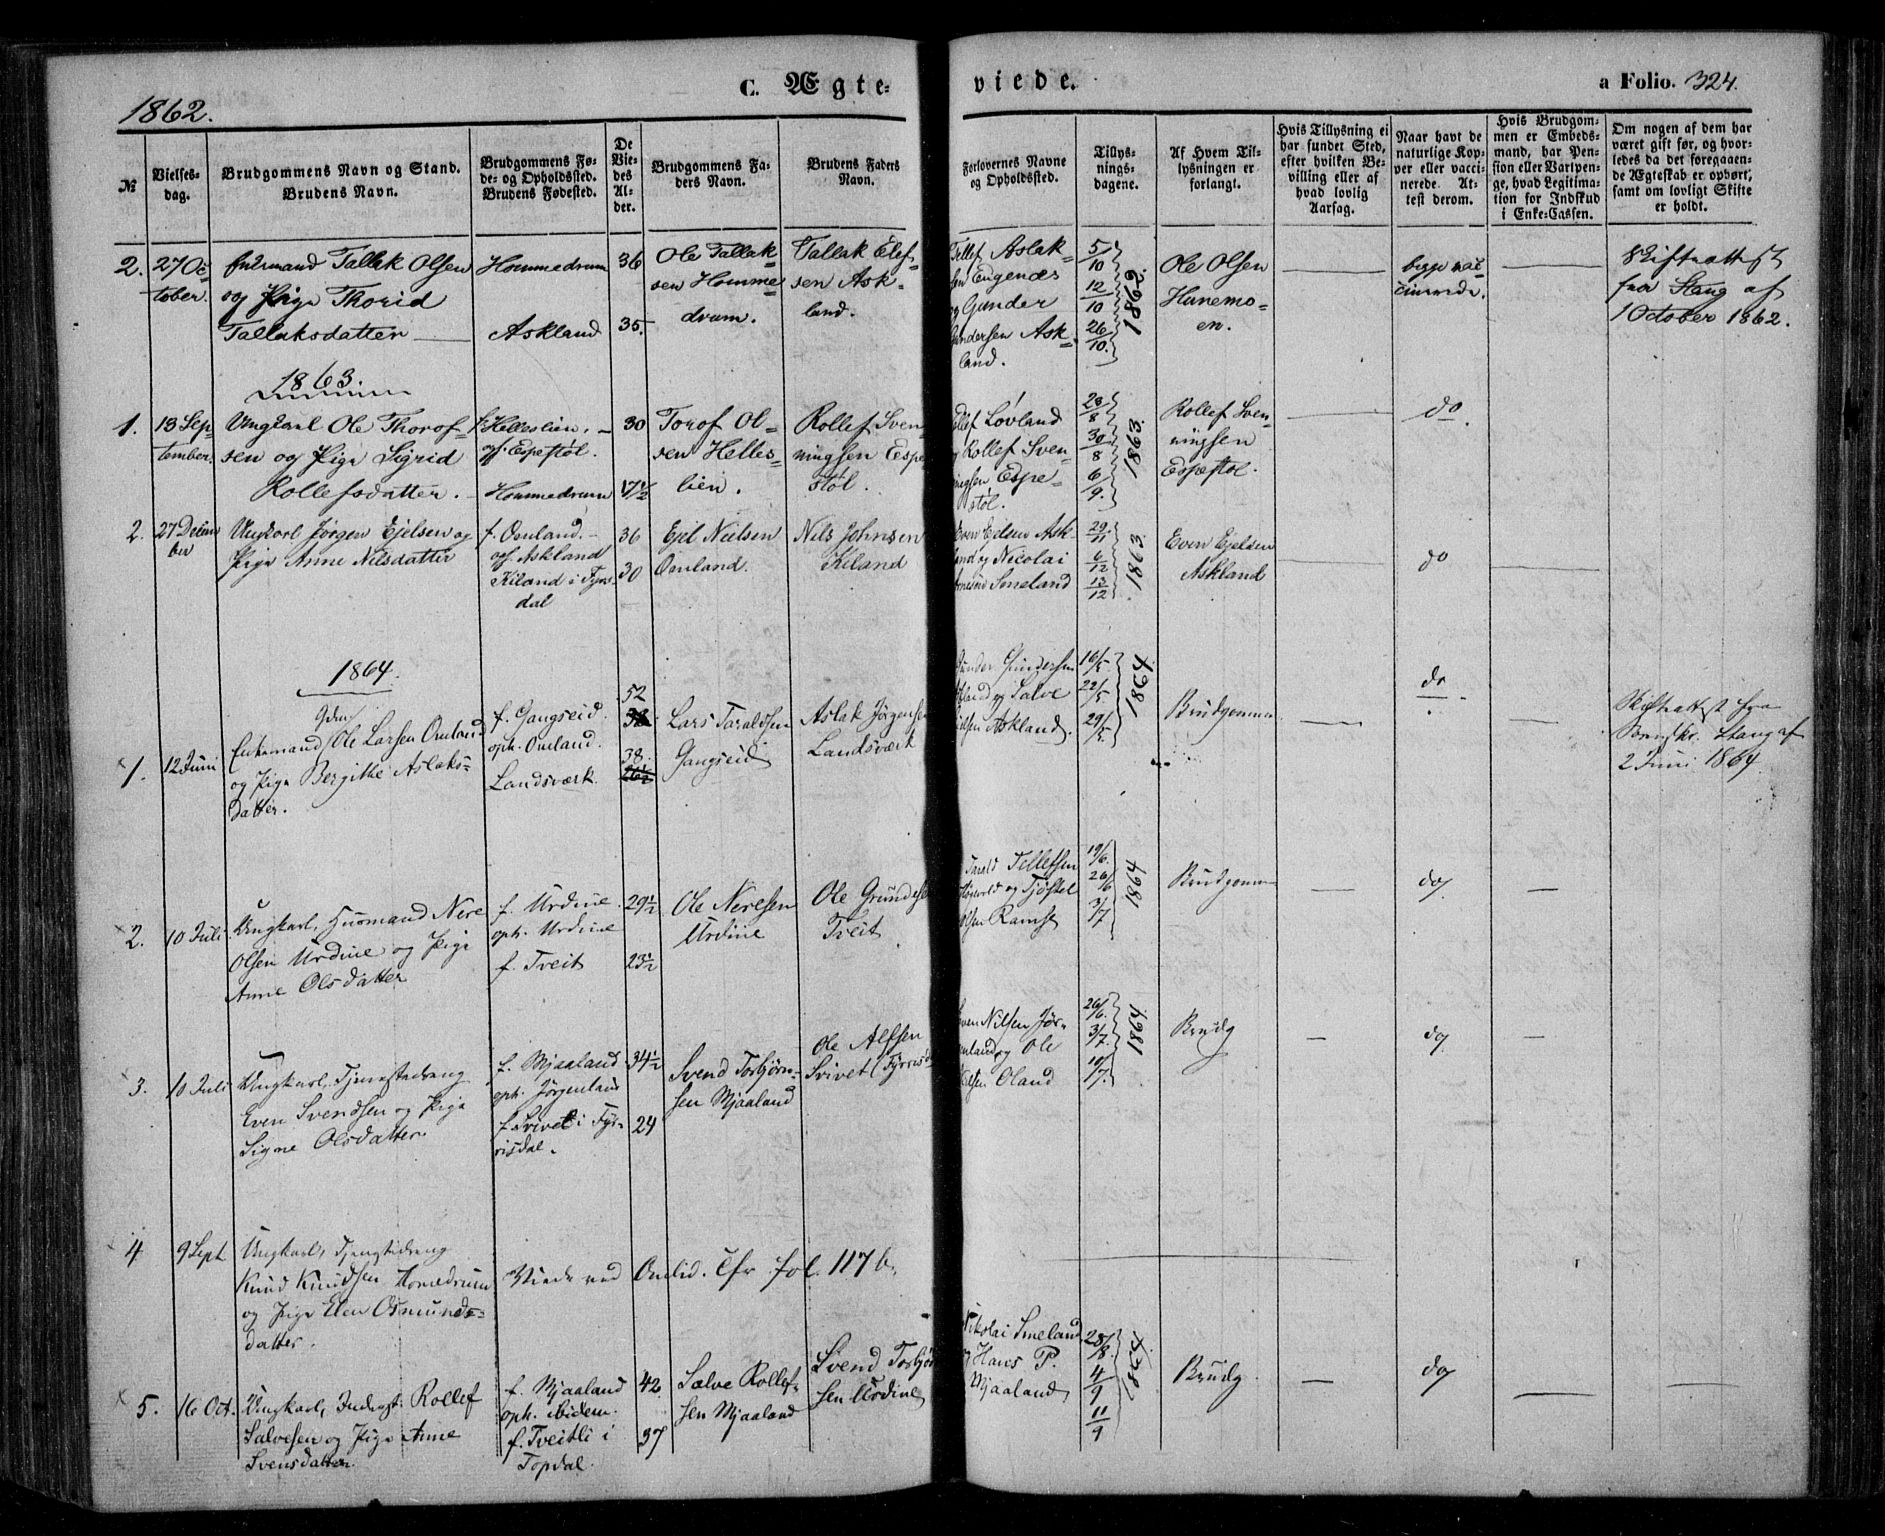 C. Ægte-
viede.
a Folio. 324.
1862.
№
Vielses-
dag.
Brudgommens Navn og Stand.
Brudens Navn.
Brudgommens Fø-
de- og Opholdssted.
Brudens Fødested.
De
Vie-
des
Al-
der.
Brudgommens Fa-
ders Navn.
Brudens Faders
Navn.
Forlovernes Navne
og Opholdssted.
Tillys-
nings-
dagene.
Af Hvem Til-
lysningen er
forlangt.
Hvis Tillysning ei
har fundet Sted,
efter hvilken Be-
villing eller af
hvad lovlig
Aarsag.
Naar havt de
naturlige Kop-
per eller vacci-
nerede. At-
test derom.
Hvis Brudgom-
men er Embeds-
mand, har Pen-
sion eller Vartpen-
ge, hvad Legitima-
tion for Indskud
i Enke-Cassen.
Om nogen af dem har
været gift før, og hvor-
ledes da det foregaaen-
de Ægteskab er ophørt,
samt om lovligt Skifte
er holdt.
2.
27 Oc-
tober.
Enkemand Tallak Olsen
og Pige Thorid
Tallaksdatter
Hommedrum
Askland
36
35.
Ole Tallak-
sen Homme-
drum.
Tallak Elef-
sen Ask-
land.
Tellef Aslak-
sen Engenæs
og Gunder
Gundersen Ask-
land.
5/10
12/10
26/10.
1862
Ole Olsen
Hanemo-
en.
begge vac-
cinerede.
Skifteattest
fra Stang af
1 October 1862.
1863.
1.
13 Sep-
tember.
Ungkarl Ole Thorof-
sen og Pige Sigrid
Rollefsdatter.
f. Helleslien.
opf. Espestøl.
Hommedrum
30
17½
Torof Ol-
sen Helles-
lien.
Rollef Sven-
ningsen Espe-
støl.
Tellef Løvland
og Rollef Sven-
ningsen Espe-
støl.
23/8
30/8
6/9.
1863
Rollef Sven-
ningsen
Espestøl.
do.
2.
27 Decem
ber
Ungkarl Jørgen Ejelsen og
Pige Anne Nilsdatter
f. Omland.
opf. Askland
Kiland i Tyris-
dal
36
30
Ejel Nielsen
Omland.
Nils Johnsen
Kiland
Even Ejelsen Ask-
land og Nicolai
Arnesen Smeland
29/11
6/12
13/12
1863
Even Ejelsen
Askland
do
1864.
1.
12 Juni
Gdm
Enkemand Ole Larsen Omland
og Pige Bergithe Aslaks-
datter.
f. Gangseid.
oph. Omland.
Landsværk
52
38.
26½
Lars Taraldsen
Gangseid
Aslak Jørgensen
Landsværk
Gunder Gundersen
Askland og Salve
Nielsen Askland.
16/5.
22/5
29/5.
1864
Brudgommen
do
Skifteattest fra
Sorenskr. Stang af
2 Juni 1864.
2.
10 Juli
Ungkarl, Husmand Nere
Olsen Urdine og Pige
Anne Olsdatter
f. Urdine.
oph. Urdine
f. Tveit
29½
23½
Ole Neresen
Urdine
Ole Grundesen
Tveit
Tarald Tellefsen
og Tjøstel
Olsen Ramse
19/6.
26/6
3/7
1864
Brudgommen
do
3.
10 Juli
Ungkarl, Tjenestedreng
Even Svendsen og Pige
Signe Olsdatter.
f. Mjaaland
oph. Jørgenland
f. Svivet i Tyr-
risdal.
34½
24
Svend Torbjørn-
sen Mjaaland
Ole Alfsen
Svivet (Tyrrisd.
Sven Nilsen Jør-
genland og Ole
Nielsen Oland
26/6.
3/7.
10/7.
1864
Brudg
do
4
9 Sept
Ungkarl, Tjenestedreng
Knud Knudsen Homedrum
og Pige Elen Osmunds-
datter.
Viede ved Omlid. Cfr fol. 117 b.
5.
16 Oct.
Ungkarl, Inderst. Rollef
Salvesen og Pige Anne
Svensdatter
f. Mjaaland
oph. ibidem.
f. Tveitli i
Topdal.
42.
37
Salve Rollef-
sen Mjaaland
Svend Torbjørn
sen Urdine
Nikolai Smeland
og Hans P.
Mjaaland
28/8.
4/9
11/9
1864
Brudg.
do